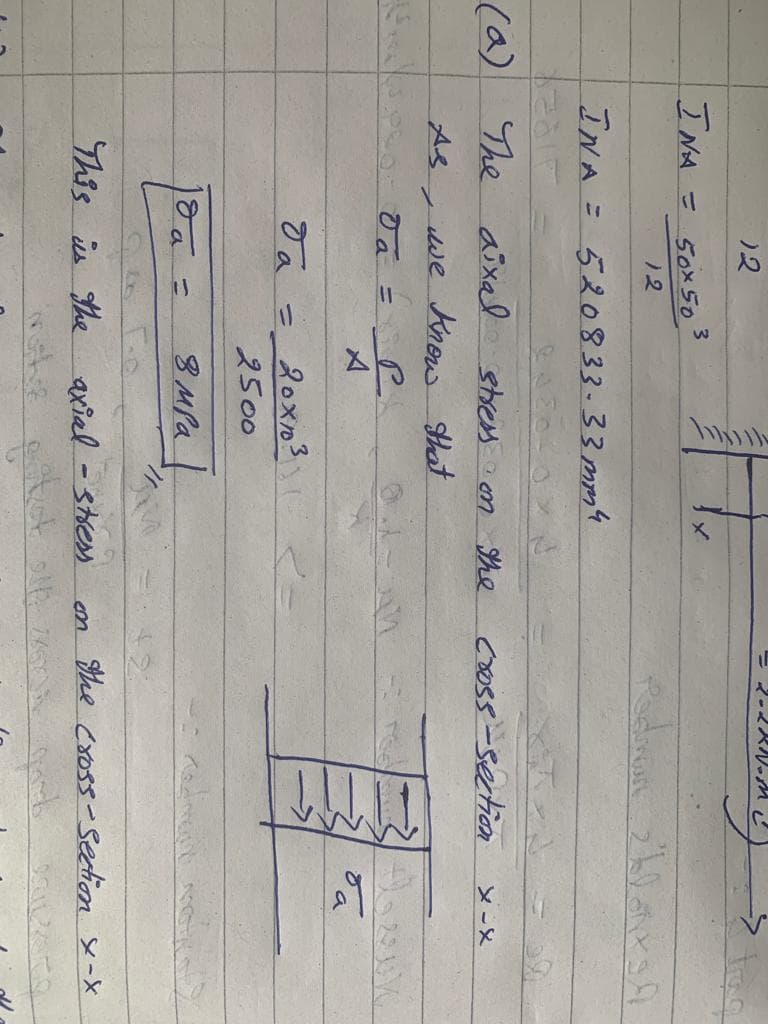 12
= 2.2KN.M
x
INA = 50×50³
12
INA = 520833.33 mm⁴
(a) The aixal stress on the cross-section x-x
As, we know that
σa = P
A
σa = 20×10³
2500
σa
σa = 8 MPa
This is the axial-stress on the cross-section x-x